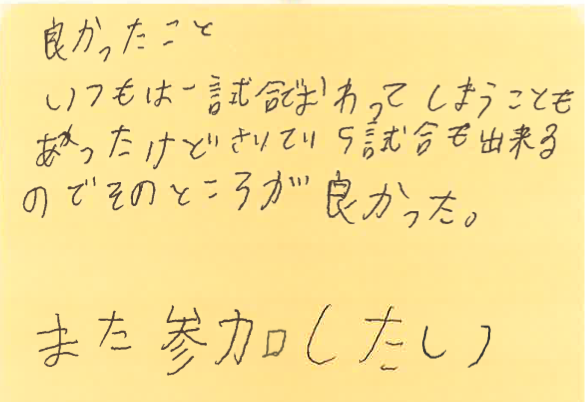 良かったこと
いつもは一試合でおわってしまうことも
あったけどさいてい5試合も出来る
のでそのところが良かった。
また参加したい